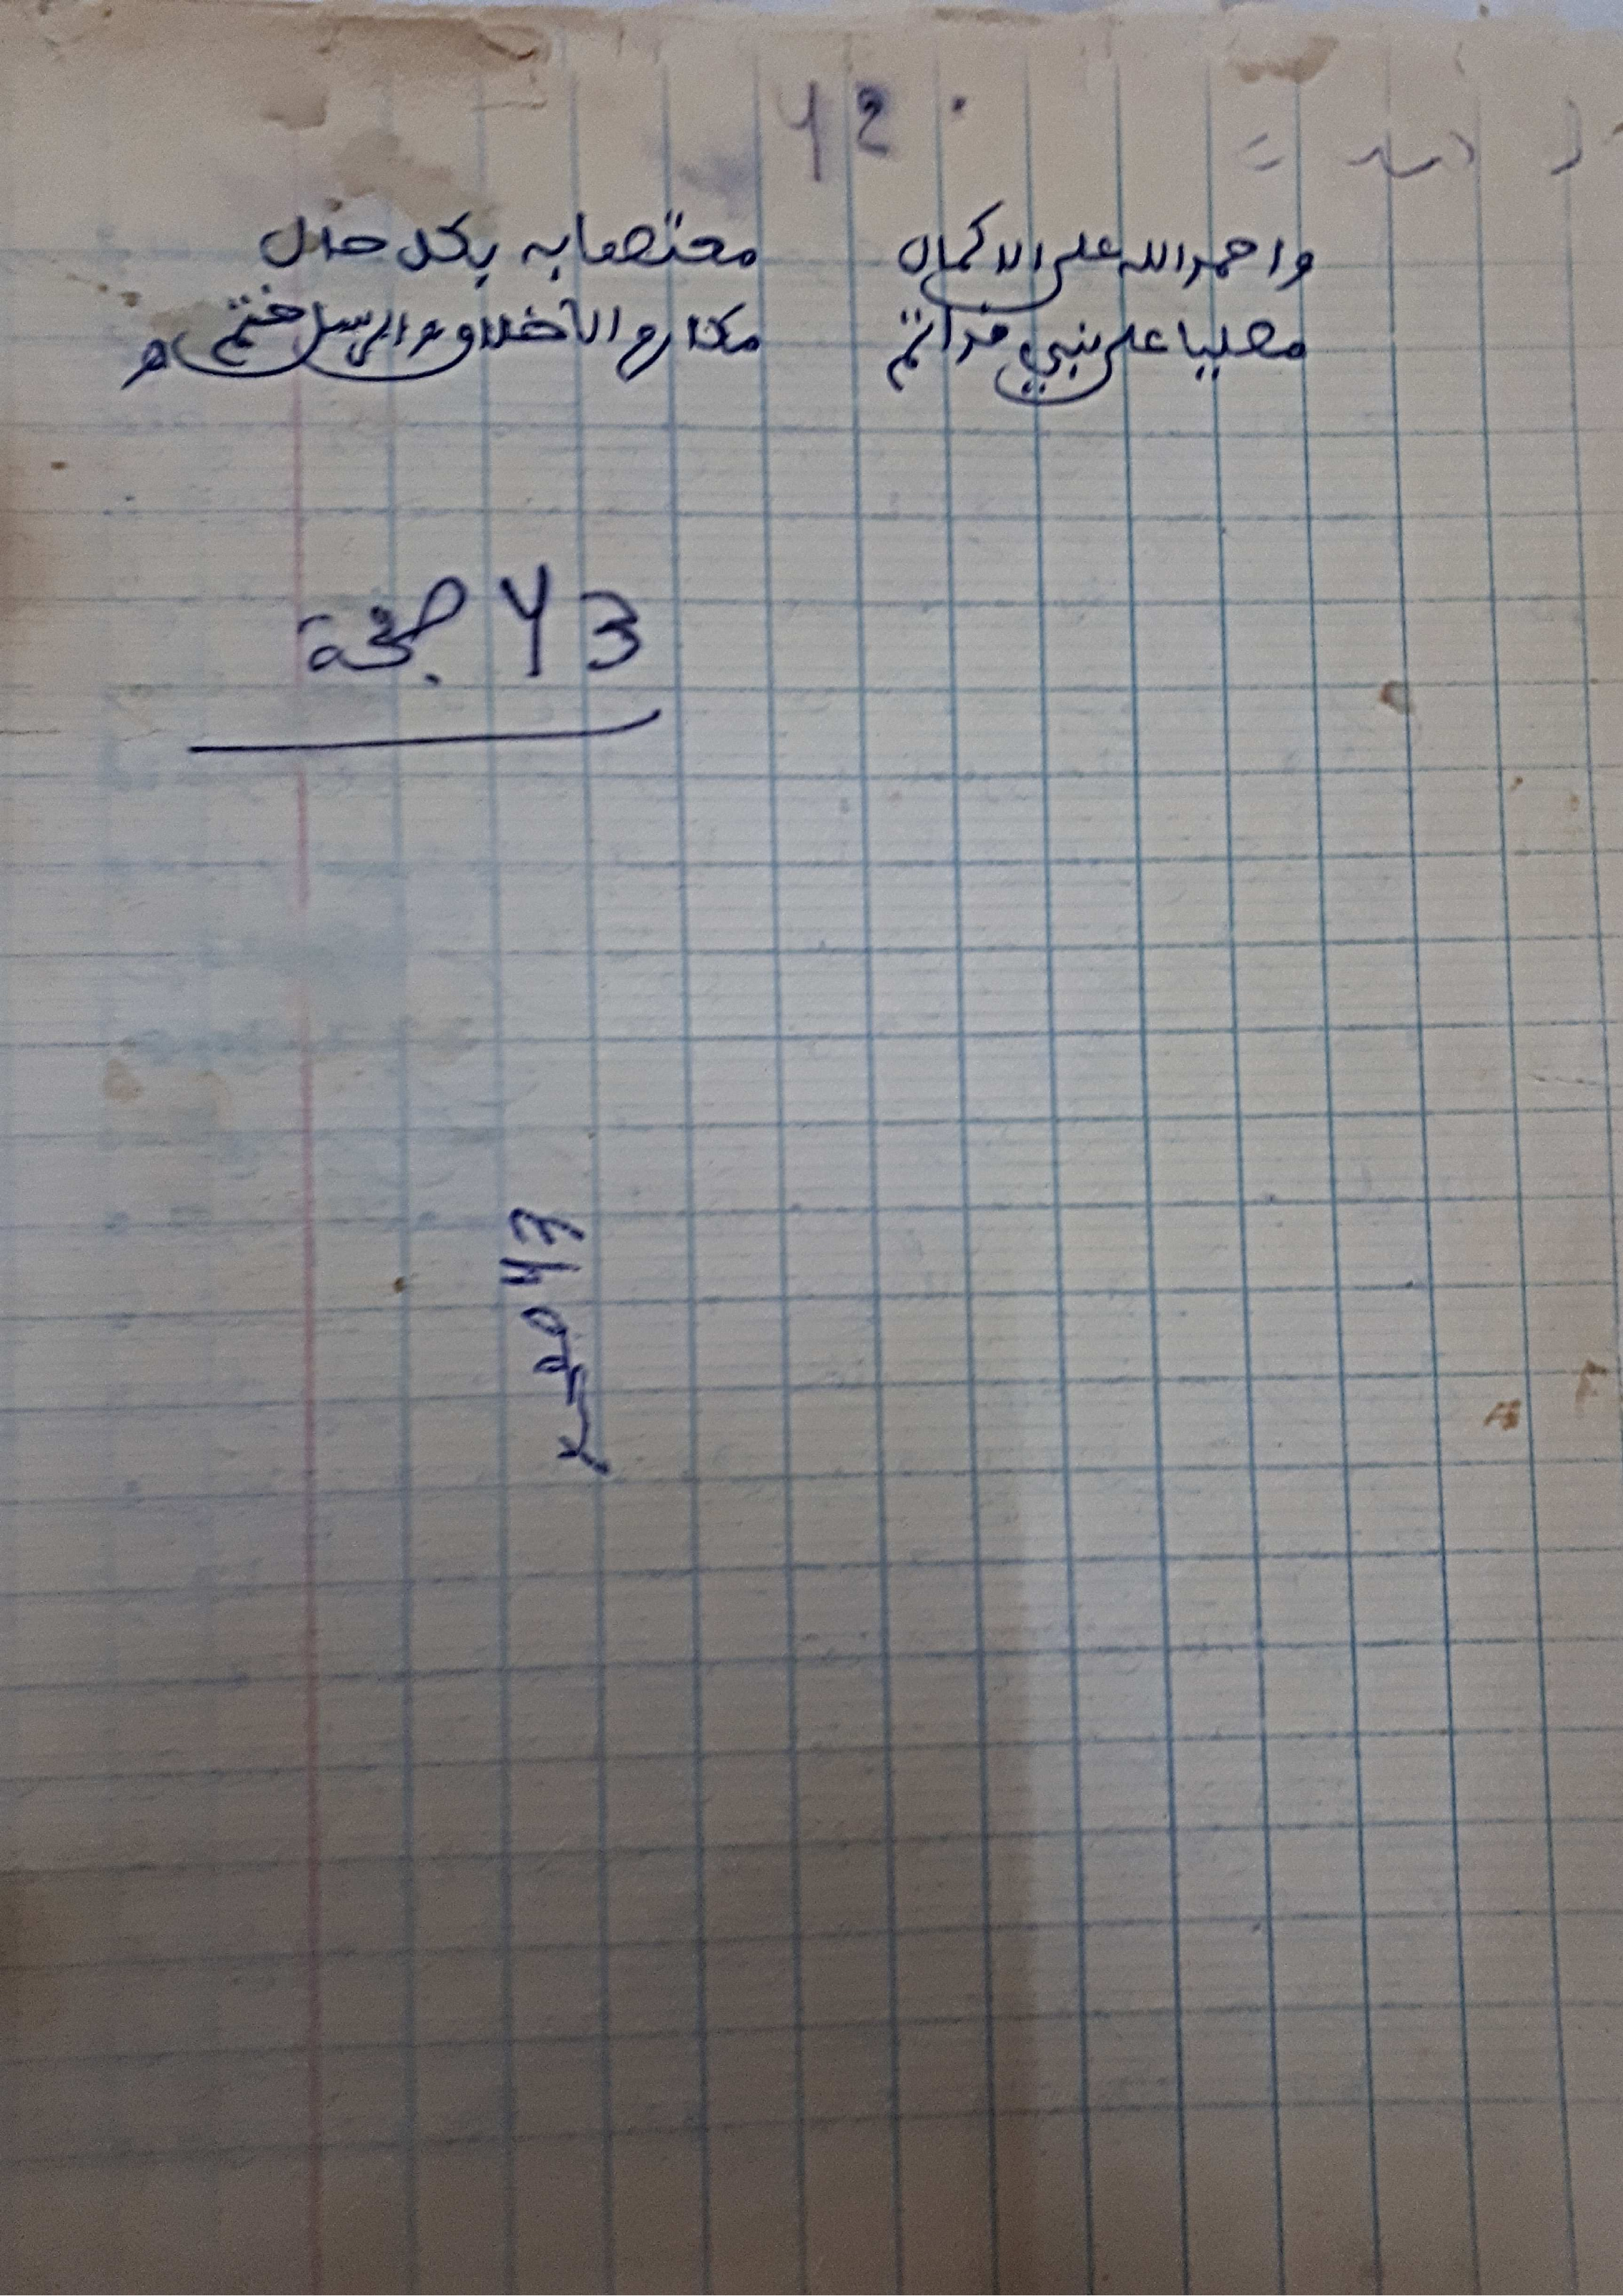 42
واحمد الله على الاكمال معتصما به بكل حال
مصليا على نبي قد اتم مكارم الأخلاق والرسل ختم
43 صفحة
43